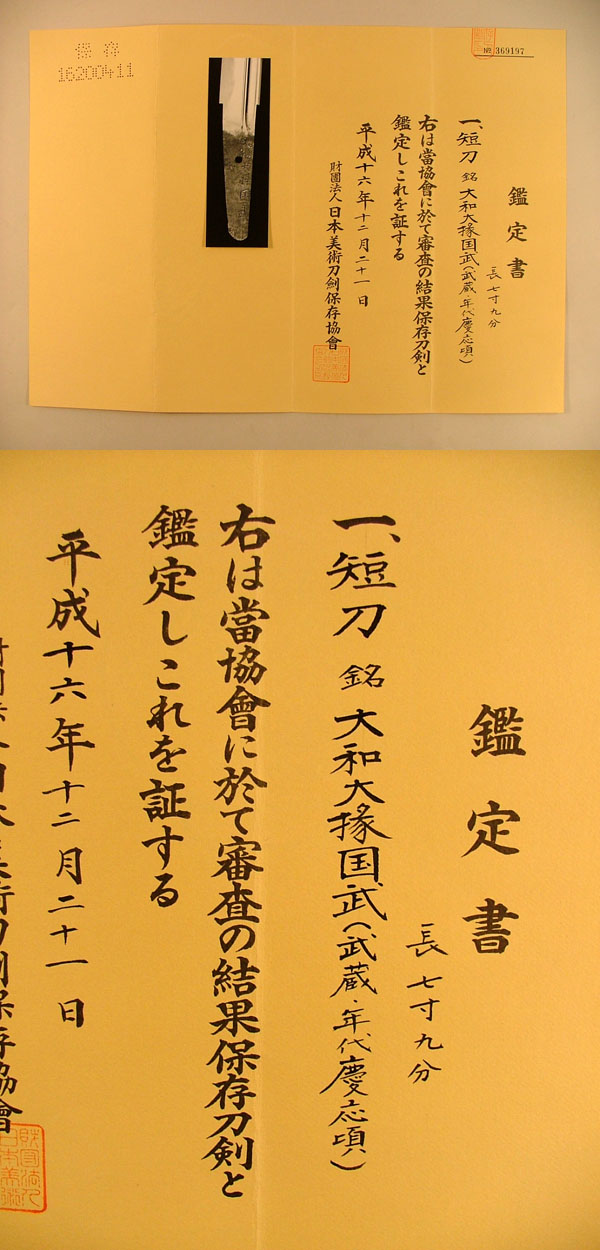 保存
16200411
№ 369197
鑑定書
長七寸九分
一、短刀 銘 大和大掾国武(武蔵・年代慶応頃)
右は當協會に於て審査の結果保存刀剣と
鑑定しこれを証する
平成十六年十二月二十一日
財團法人 日本美術刀劍保存協會
鑑定書
長七寸九分
一、短刀 銘 大和大掾国武(武蔵・年代慶応頃)
右は當協會に於て審査の結果保存刀剣と
鑑定しこれを証する
平成十六年十二月二十一日
日本美術刀劍保存協會
財團法人
日本美術